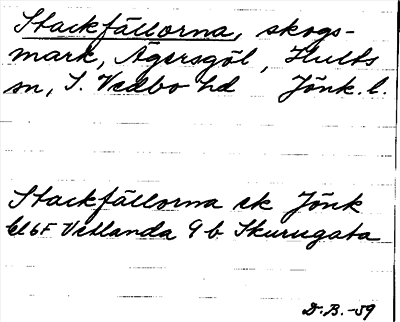 Stackfällorna, skogs-
mark, Ägersgöl, Hults
sn, S. Vedbo hd Jönk. l.
Stackfällorna ek Jönk
6F Vetlanda 9 b Skurugata
D.B. -59